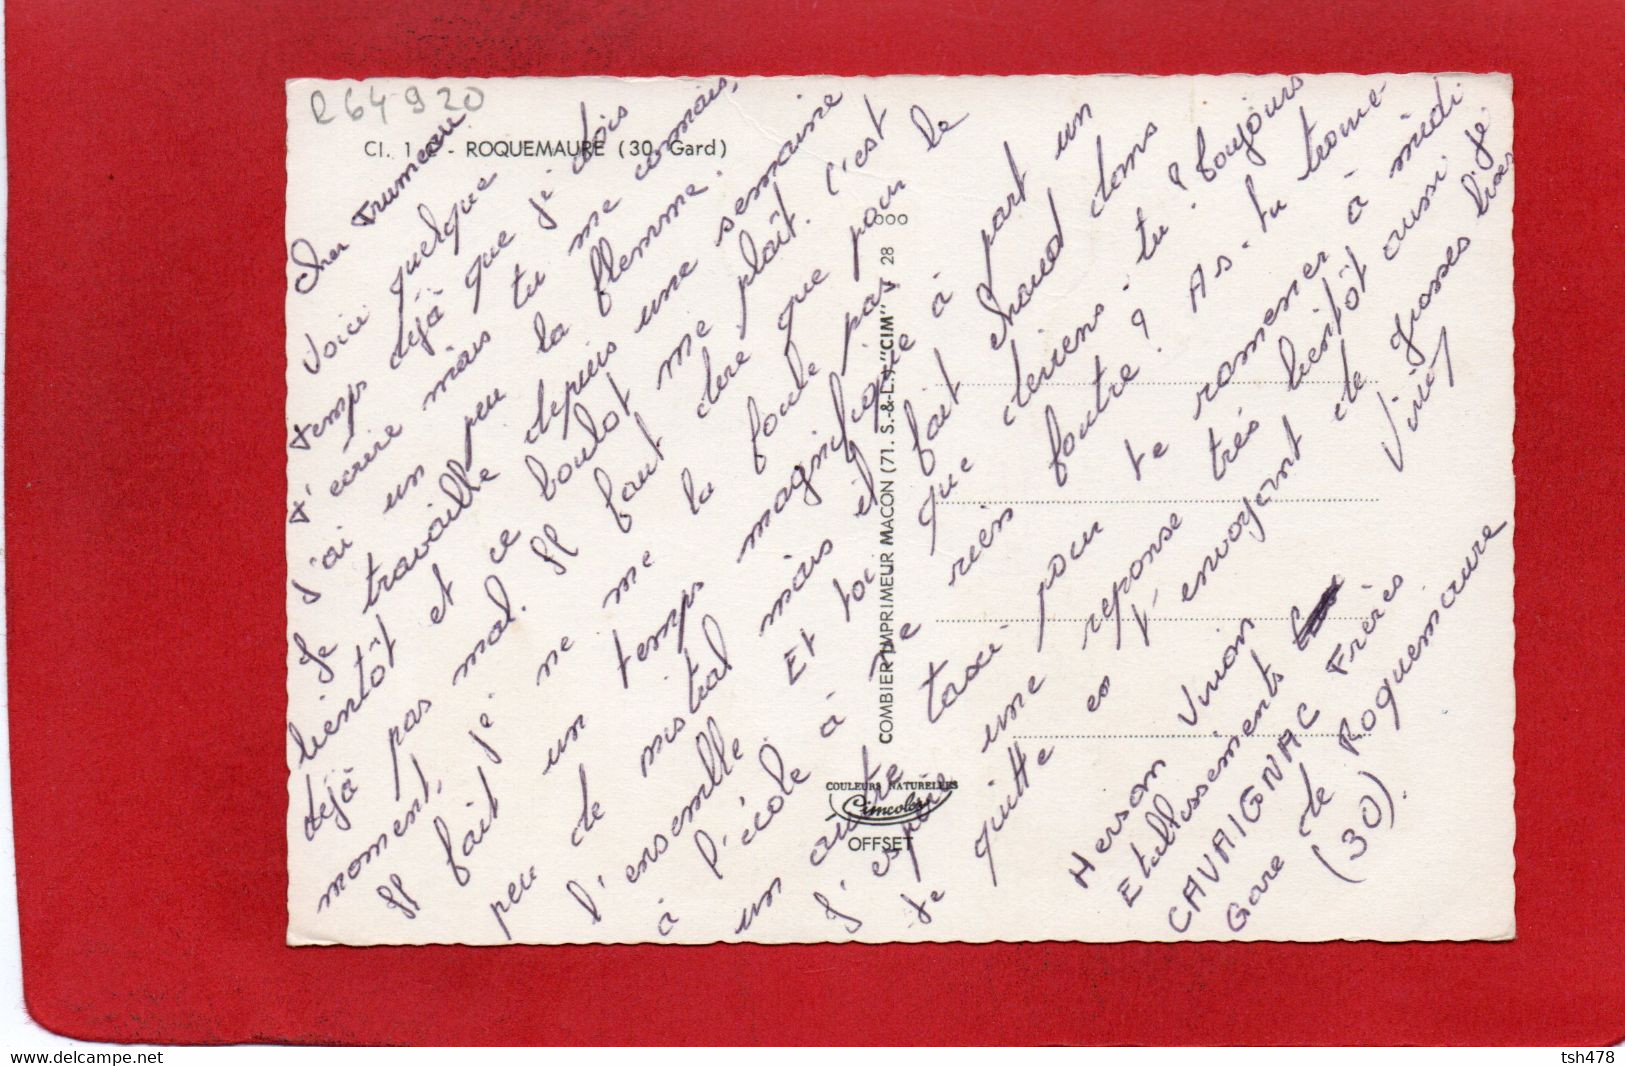 R64920
Cl. 1 - ROQUEMAURE (30. Gard)
Cher Trumeau
Voici quelque
temps déjà que je dois
t'écrire mais tu me connais,
j'ai un peu la flemme.
Je travaille depuis une semaine
bientôt et ce boulot me plaît. C'est
déjà pas mal. Il faut dire que pour le
moment, je ne me la foule pas
Il fait un temps magnifique à part un
peu de mistral mais il fait chaud dans
l'ensemble. Et toi que deviens-tu ? Toujours
à l'école à ne rien foutre ? As-tu trouvé
un autre taxi pour te ramener à midi
J'espère une reponse très bientôt aussi je
te quitte en t'envoyant de grosses bises
Herson Vivian
Etablissements
CAVAIGNAC Frères
Gare de Roquemaure
(30).
COMBIER IMPRIMEUR MACON (71. S.-&-L.) "CIM"
28 000
COULEURS NATURELLES
Cimcolor
OFFSET
delcampe.net
tsh478